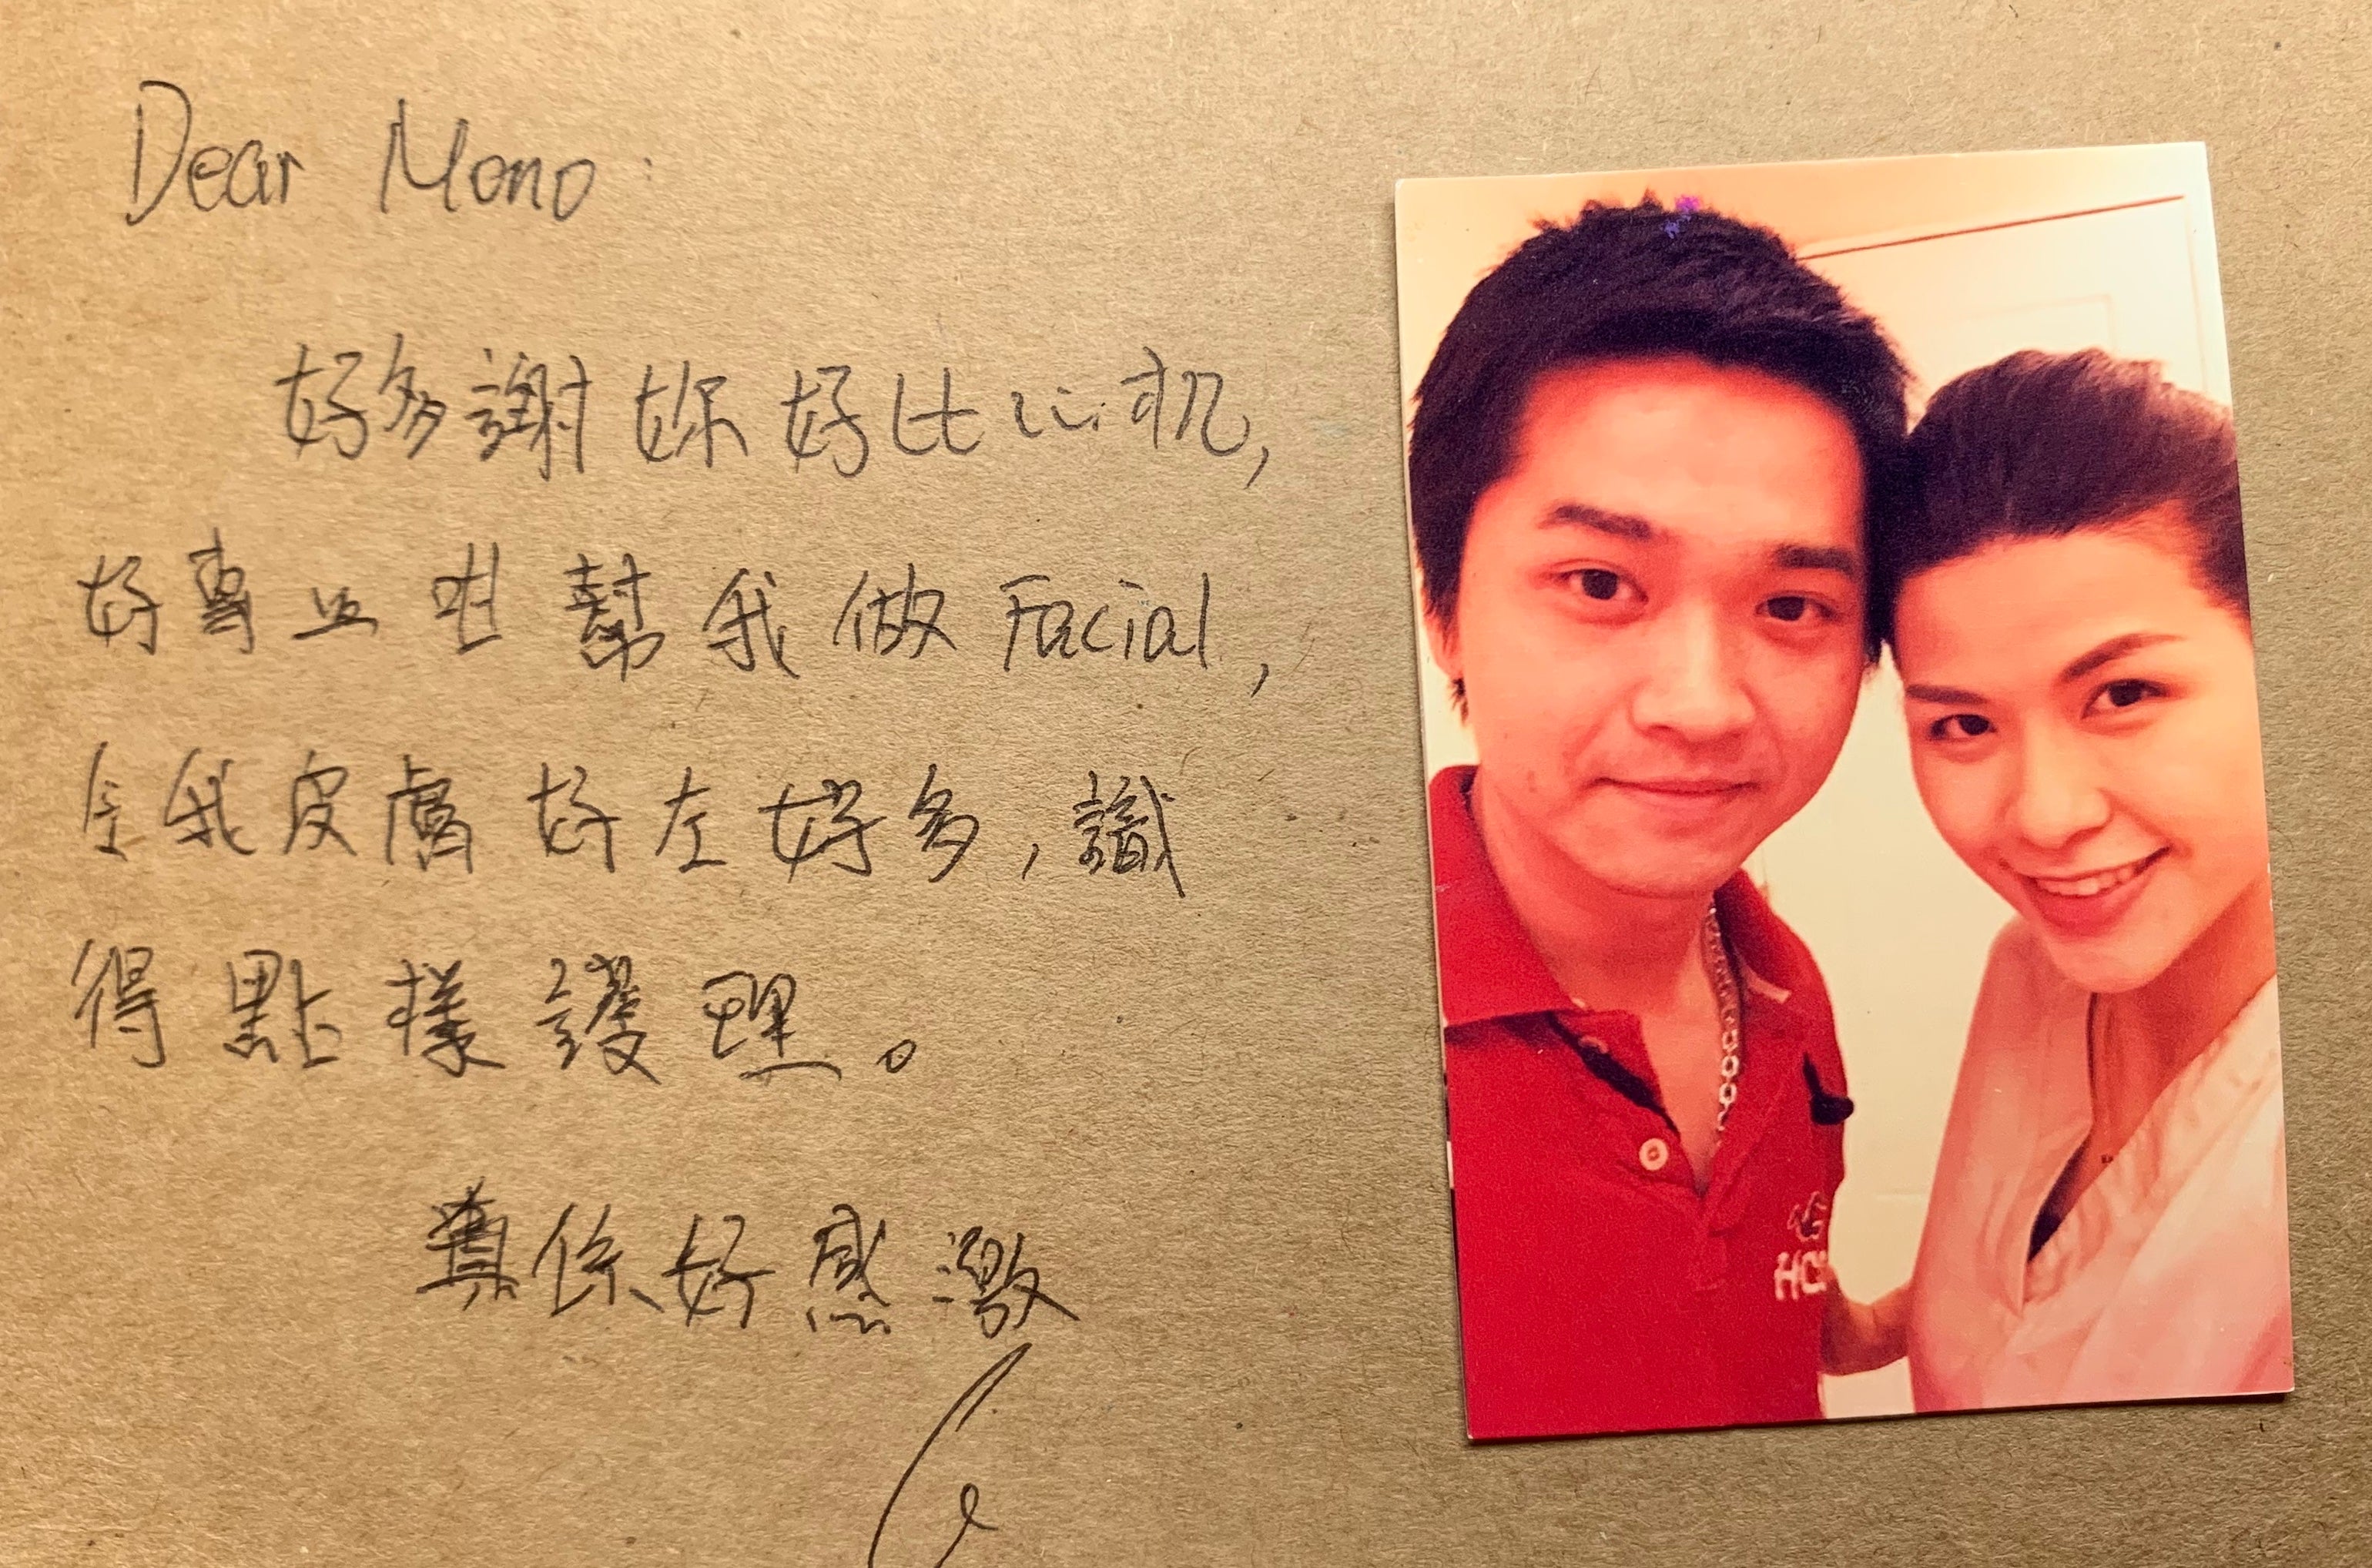 Dear Mono:
好多謝妳好比心机,
好專业咁幫我做Facial,
令我皮膚好左好多,識
得點樣護理。
真係好感激
HC